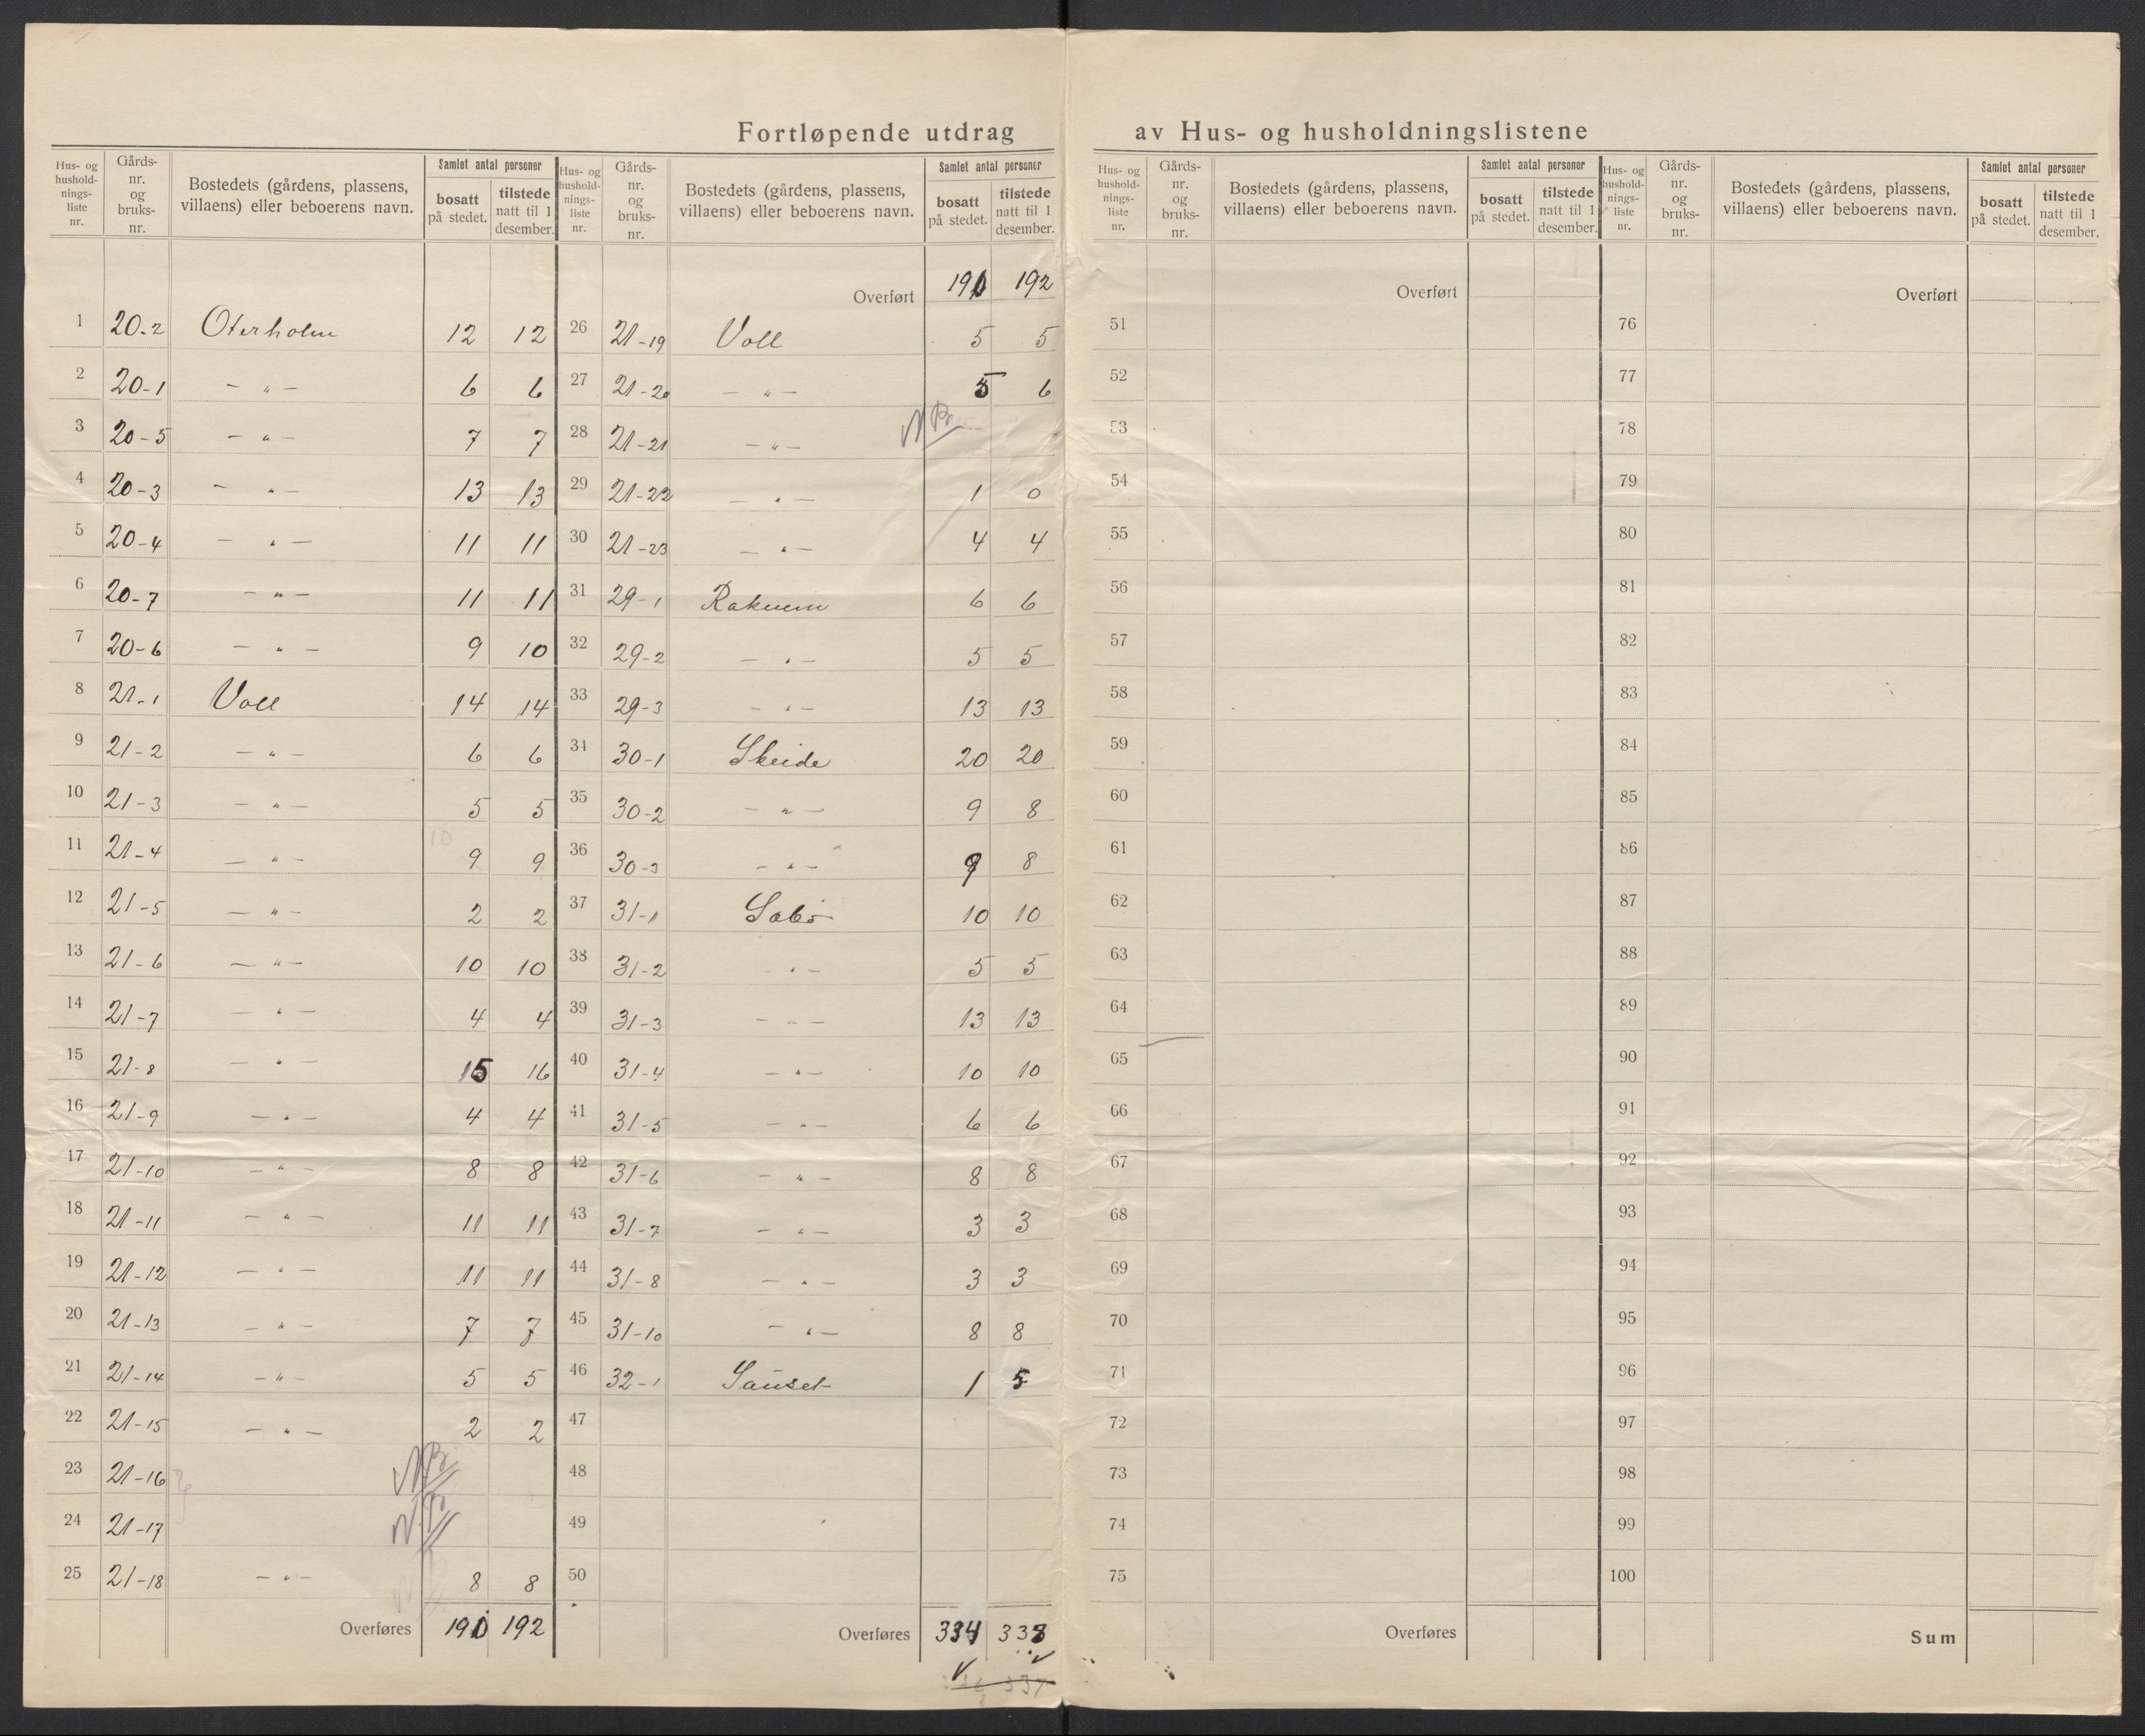 Fortløpende utdrag av Hus- og husholdningslistene
Hus- og husholdningsliste nr. Gårdsnr. og bruksnr. Bostedets (gårdens, plassens, villaens) eller beboerens navn. Samlet antal personer bosatt på stedet. tilstede natt til 1 desember.
1 20-2 Oterholm 12 12
2 20-1 — „ — 6 6
3 20-5 — „ — 7 7
4 20-3 — „ — 13 13
5 20-4 — „ — 11 11
6 20-7 — „ — 11 11
7 20-6 — „ — 9 10
8 21-1 Voll 14 14
9 21-2 — „ — 6 6
10 21-3 — „ — 5 5
11 21-4 — „ — 9 9
12 21-5 — „ — 2 2
13 21-6 — „ — 10 10
14 21-7 — „ — 4 4
15 21-8 — „ — 15 16
16 21-9 — „ — 4 4
17 21-10 — „ — 8 8
18 21-11 — „ — 11 11
19 21-12 — „ — 11 11
20 21-13 — „ — 7 7
21 21-14 — „ — 5 5
22 21-15 — „ — 2 2
23 21-16
24 21-17
25 21-18 — „ — 8 8
Overføres 190 192
Hus- og husholdningsliste nr. Gårdsnr. og bruksnr. Bostedets (gårdens, plassens, villaens) eller beboerens navn. Samlet antal personer bosatt på stedet. tilstede natt til 1 desember.
Overført 190 192
26 21-19 Voll 5 5
27 21-20 — „ — 5 6
28 21-21 — „ —
29 21-22 — „ — 1 0
30 21-23 — „ — 4 4
31 29-1 Raknem 6 6
32 29-2 — „ — 5 5
33 29-3 — „ — 13 13
34 30-1 Skeide 20 20
35 30-2 — „ — 9 8
36 30-3 — „ — 9 8
37 31-1 Sæbø 10 10
38 31-2 — „ — 5 5
39 31-3 — „ — 13 13
40 31-4 — „ — 10 10
41 31-5 — „ — 6 6
42 31-6 — „ — 8 8
43 31-7 — „ — 3 3
44 31-8 — „ — 3 3
45 31-10 — „ — 8 8
46 32-1 Sauset 1 5
47
48
49
50
Overføres 334 338
Hus- og husholdningsliste nr. Gårdsnr. og bruksnr. Bostedets (gårdens, plassens, villaens) eller beboerens navn. Samlet antal personer bosatt på stedet. tilstede natt til 1 desember.
Overført
51
52
53
54
55
56
57
58
59
60
61
62
63
64
65
66
67
68
69
70
71
72
73
74
75
Overføres
Hus- og husholdningsliste nr. Gårdsnr. og bruksnr. Bostedets (gårdens, plassens, villaens) eller beboerens navn. Samlet antal personer bosatt på stedet. tilstede natt til 1 desember.
Overført
76
77
78
79
80
81
82
83
84
85
86
87
88
89
90
91
92
93
94
95
96
97
98
99
100
Sum